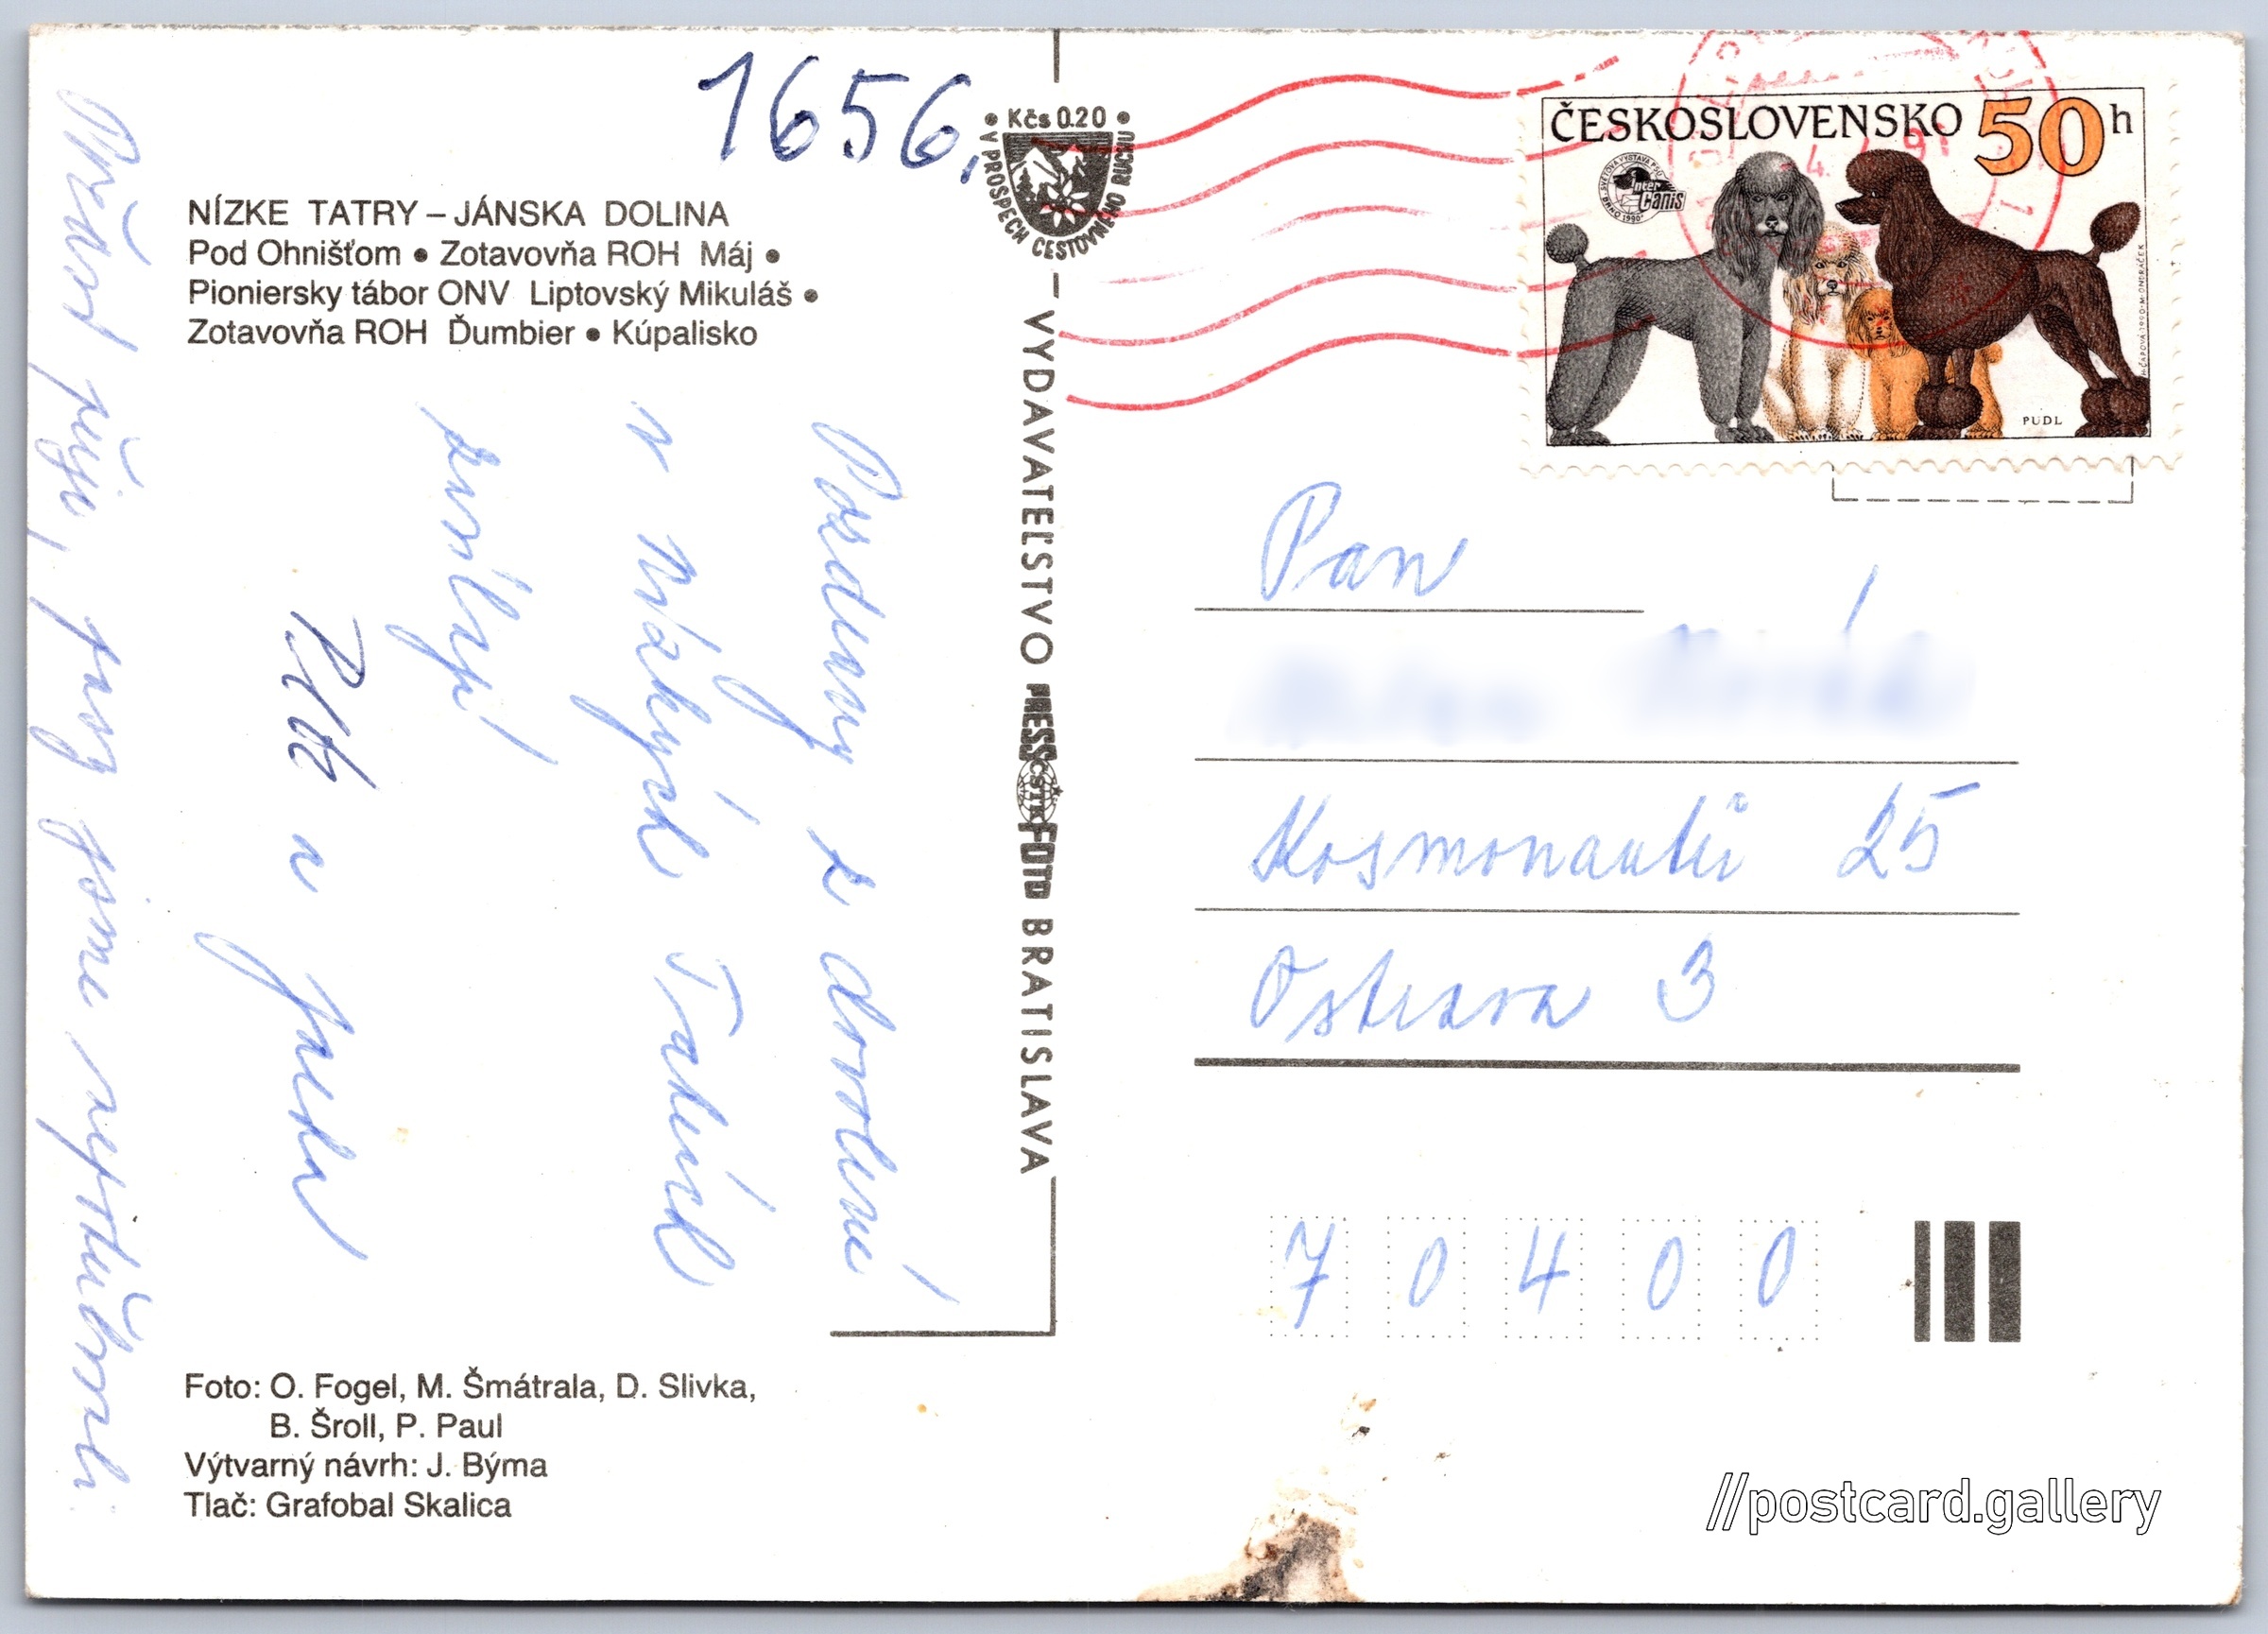 1656,
Kčs 0.20
V PROSPECH CESTOVNÉHO RUCHU
NÍZKE TATRY – JÁNSKA DOLINA
Pod Ohnišťom • Zotavovňa ROH Máj •
Pioniersky tábor ONV Liptovský Mikuláš •
Zotavovňa ROH Ďumbier • Kúpalisko
Pozdravy z dovolené
v Nízkých Tatrách
zasílají
Petr a
počasí přeje, tasy jsme
Foto: O. Fogel, M. Šmátrala, D. Slivka,
B. Šroll, P. Paul
Výtvarný návrh: J. Býma
Tlač: Grafobal Skalica
VYDAVATEĽSTVO PRESSFOTO BRATISLAVA
ČSTK
ČESKOSLOVENSKO 50 h
SVĚTOVÁ VÝSTAVA PSŮ
Inter Canis
BRNO 1990
PUDL
Pan
Kosmonautů 25
Ostrava 3
70400
//postcard.gallery